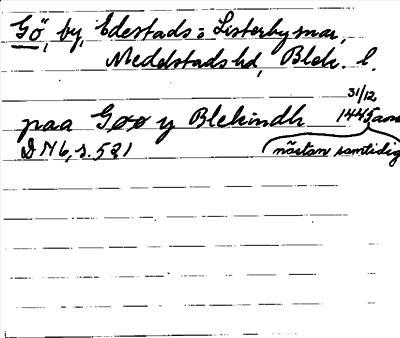 Gö, by, Edestads o Listerby snr,
Medelstads hd, Blek. l.
31/12
paa Gøø y Blekindh 1445 avs
DN 6, s. 521 nästan samtidig